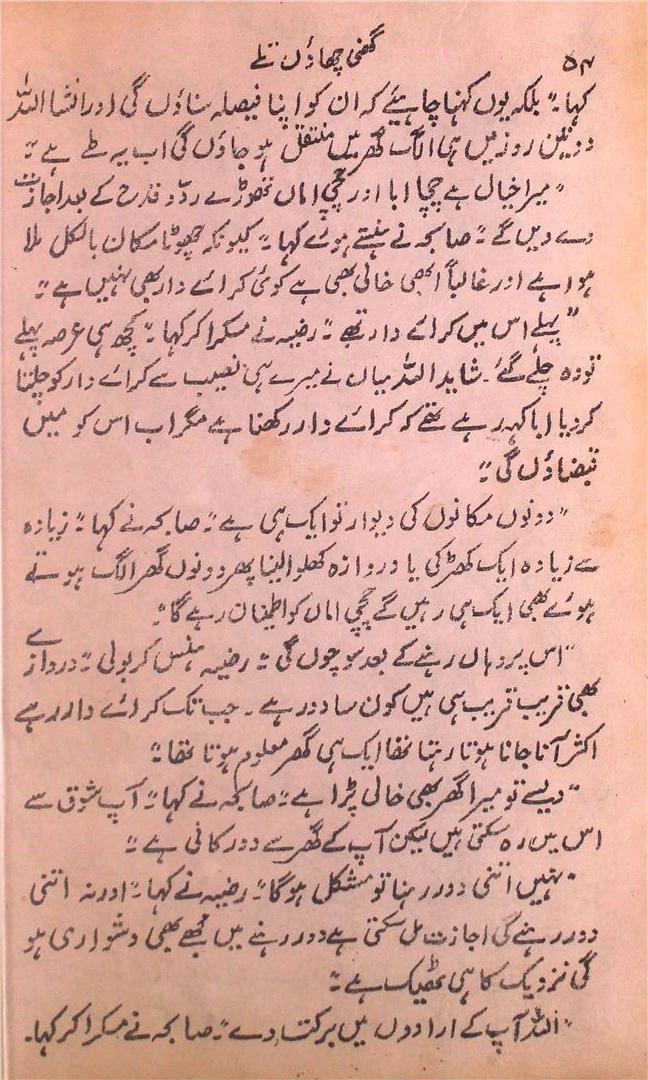 ۵۴
گھنی چھاؤں تلے
کہا۔" بلکہ یوں کہنا چاہیئے کہ ان کو اپنا فیصلہ سناؤں گی اور انشا اللہ
دو تین روز میں ہی الگ گھر میں منتقل ہو جاؤں گی اب یہ طے ہے۔"
"میرا خیال ہے چچا ابا اور چچی اماں تھوڑے ردّ و قدح کے بعد اجازت
دے دیں گے۔" صابحہ نے ہنستے ہوئے کہا۔" کیونکہ چھوٹا مکان بالکل ملا
ہوا ہے اور غالباً ابھی خالی بھی ہے کوئی کرائے دار بھی نہیں ہے۔"
"پہلے اس میں کرائے دار تھے۔" رضیہ نے مسکرا کر کہا۔" کچھ ہی عرصہ پہلے
تو وہ چلے گئے۔ شاید اللہ میاں نے میرے ہی نصیب سے کرائے دار کو چلتا
کر دیا ابا کہہ رہے تھے کہ کرائے دار رکھنا ہے مگر اب اس کو میں
قبضاؤں گی۔"
"دونوں مکانوں کی دیوار تو ایک ہی ہے۔" صابحہ نے کہا۔" زیادہ
سے زیادہ ایک کھڑکی یا دروازہ کھلوا لینا پھر دونوں گھر الگ ہوتے
ہوئے بھی ایک ہی رہیں گے چچی اماں کو اطمنان رہے گا۔"
"اس پر وہاں رہنے کے بعد سوچوں گی۔" رضیہ ہنس کر بولی۔" دروازے
بھی قریب قریب ہی ہیں کون سا دور ہے۔ جب تک کرائے دار رہے
اکثر آنا جانا ہوتا رہتا تھا ایک ہی گھر معلوم ہوتا تھا۔"
"ویسے تو میرا گھر بھی خالی پڑا ہے۔" صابحہ نے کہا۔" آپ شوق سے
اس میں رہ سکتی ہیں لیکن آپ کے گھر سے دور کافی ہے۔"
"نہیں اتنی دور رہنا تو مشکل ہوگا۔" رضیہ نے کہا۔" اور نہ اتنی
دور رہنے کی اجازت مل سکتی ہے دور رہنے میں مجھے بھی دشواری ہو
گی نزدیک کا ہی ٹھیک ہے۔"
"اللہ آپ کے ارادوں میں برکت دے۔" صابحہ نے مسکرا کر کہا۔